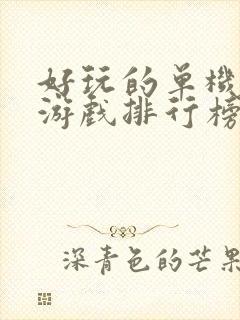 好玩的单機
游戏排行榜
深青色的芒果